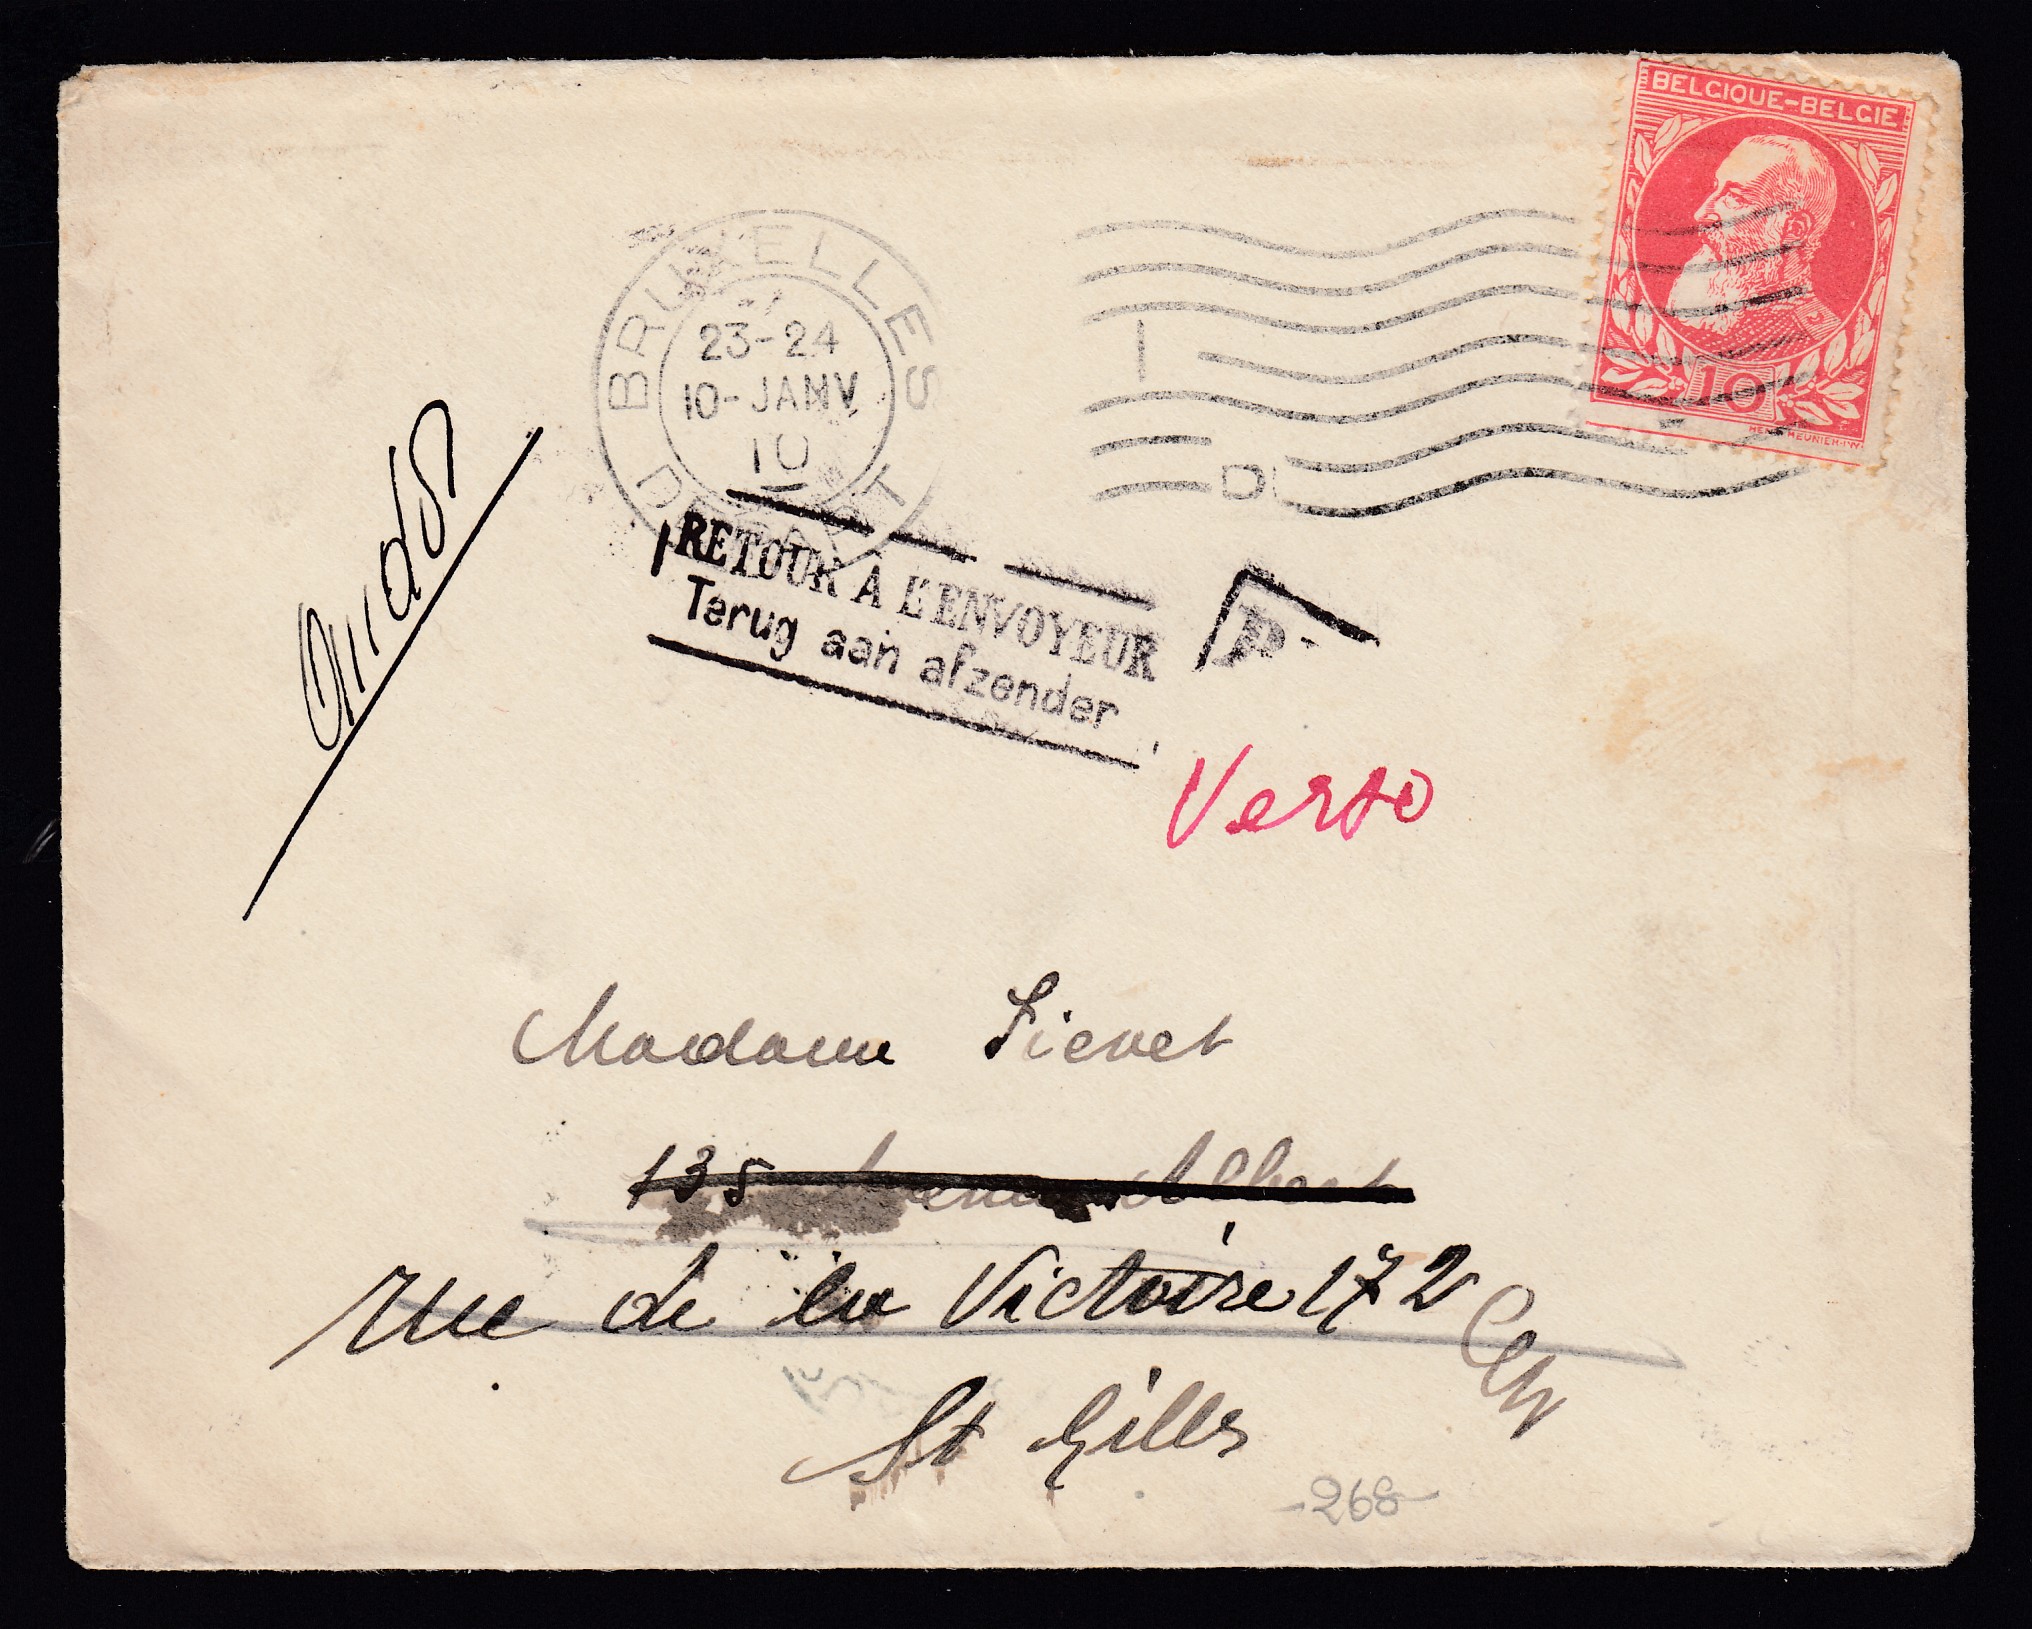 BELGIQUE-BELGIE
10
BRUXELLES
23-24
10-JANV
10
DEPART
RETOUR A L'ENVOYEUR
Terug aan afzender
P
Verso
Madame Sievet
135 Avenue Albert
rue de la Victoire 172
St Gilles
-268-